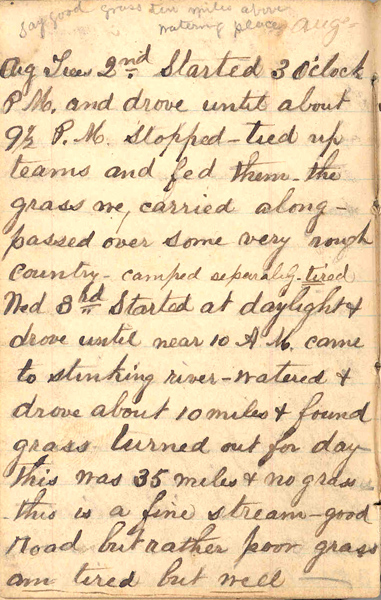 Say good grass ten miles above
watering place
Aug
Aug Tues 2nd Started 3 O'clock
P.M. and drove until about
9½ P.M. Stopped - tied up
teams and fed them - the
grass we, carried along -
passed over some very rough
country - camped separately - tired
Wed 3rd Started at daylight &
drove until near 10 A.M. came
to stinking river - watered &
drove about 10 miles & found
grass turned out for day
this was 35 miles & no grass
- this is a fine stream - good
road but rather poor grass
am tired but well -